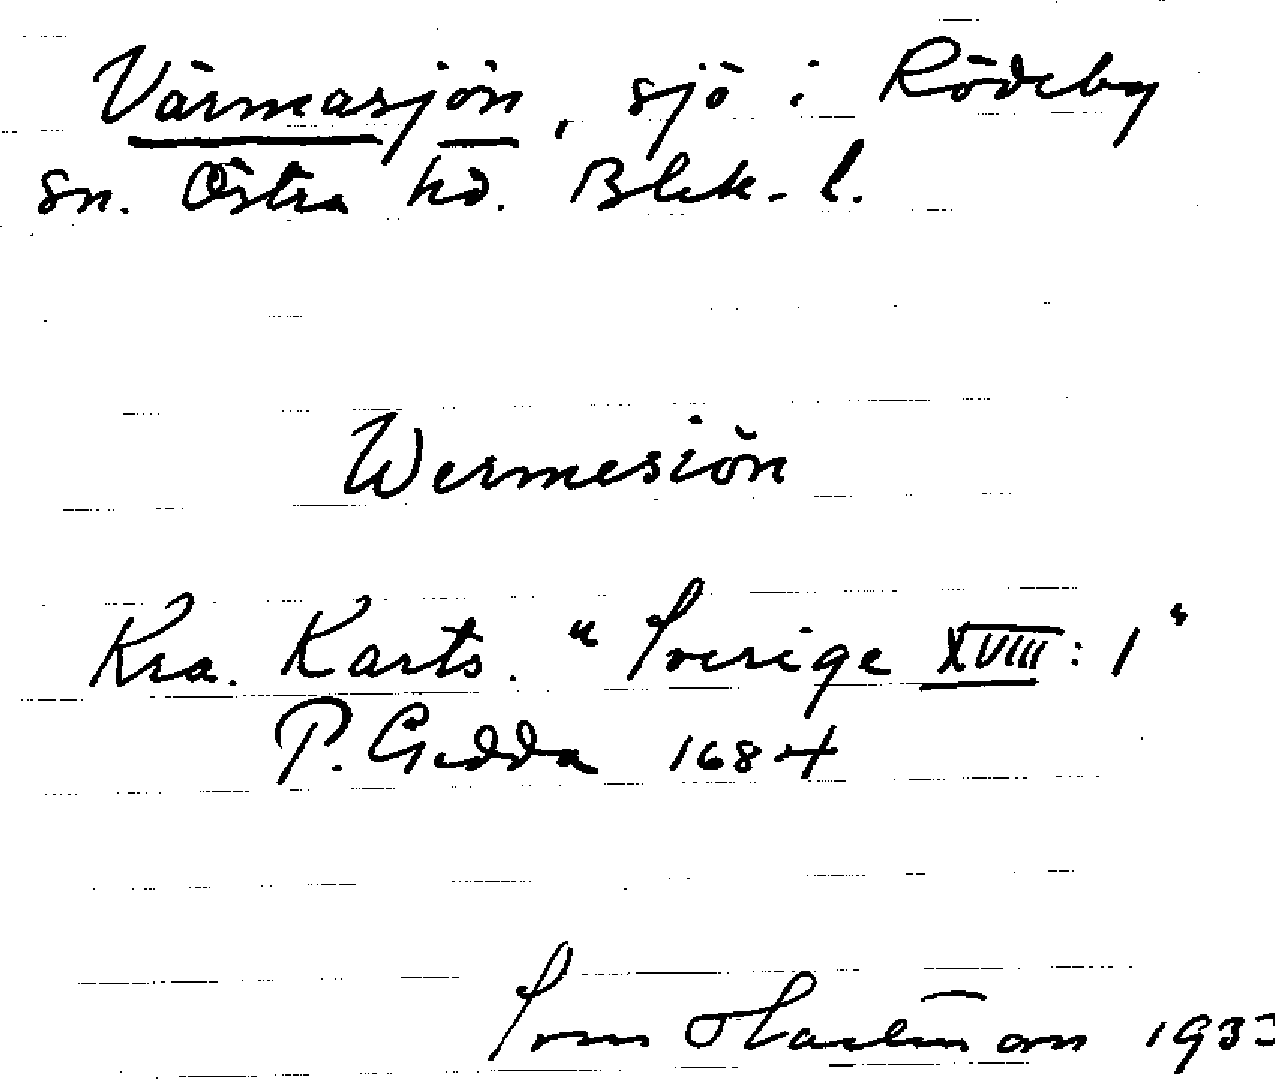 Värmasjön, sjö i Rödeby
sn. Östra hd. Blek. l.
Wermesiön
Kra. Karts. "Sverige XVIII: 1"
P. Gedda 1684
Sven